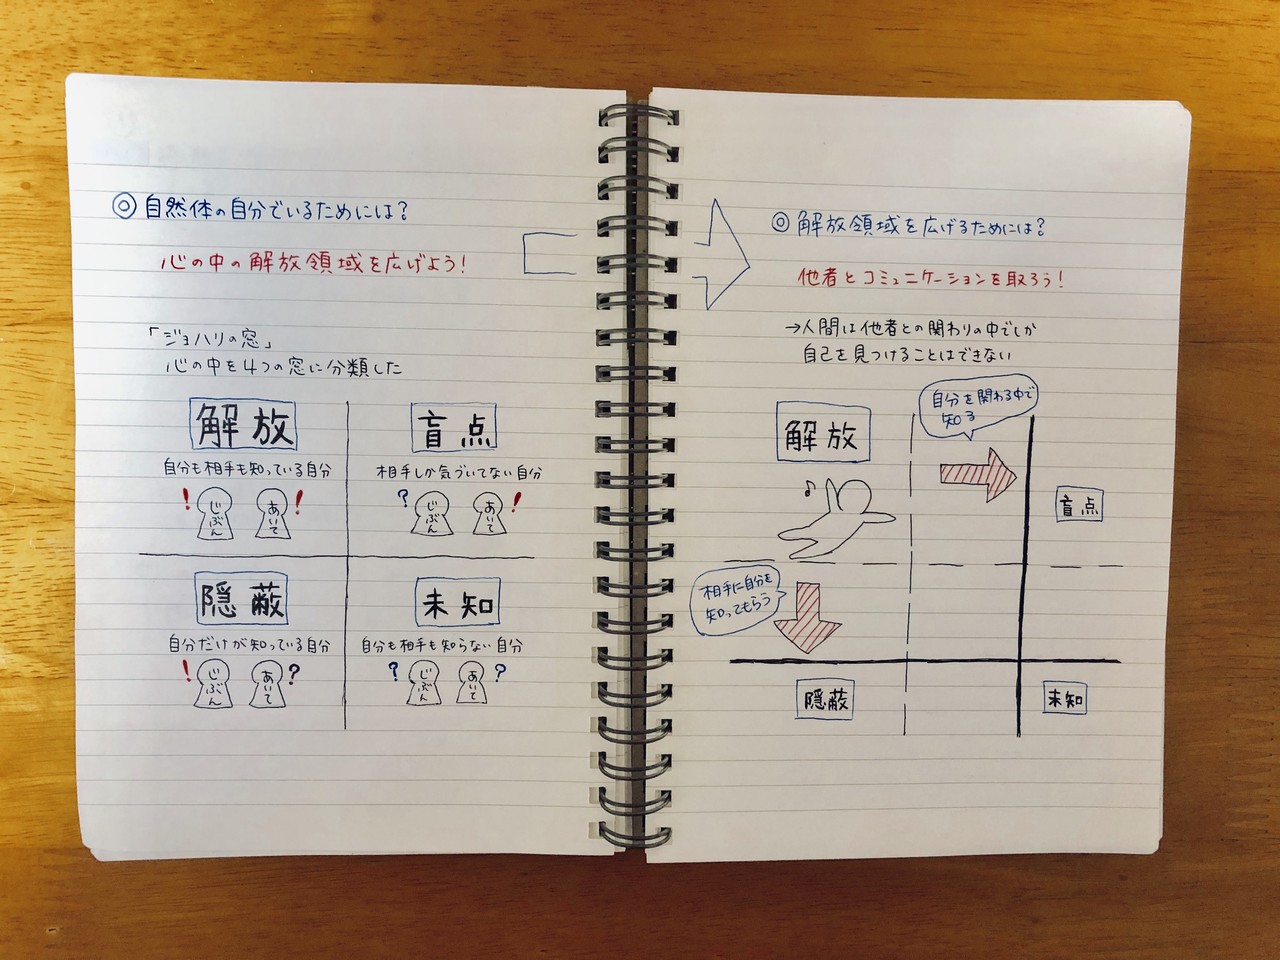 ◎ 自然体の自分でいるためには?
心の中の解放領域を広げよう!
「ジョハリの窓」
心の中を4つの窓に分類した
解放
自分も相手も知っている自分
! じぶん あいて !
盲点
相手しか気づいてない自分
? じぶん あいて !
隠蔽
自分だけが知っている自分
! じぶん あいて ?
未知
自分も相手も知らない自分
? じぶん あいて ?
◎ 解放領域を広げるためには?
他者とコミュニケーションを取ろう!
→人間は他者との関わりの中でしか
自己を見つけることはできない
解放
自分を関わる中で
知る
♪
盲点
相手に自分を
知ってもらう
隠蔽
未知